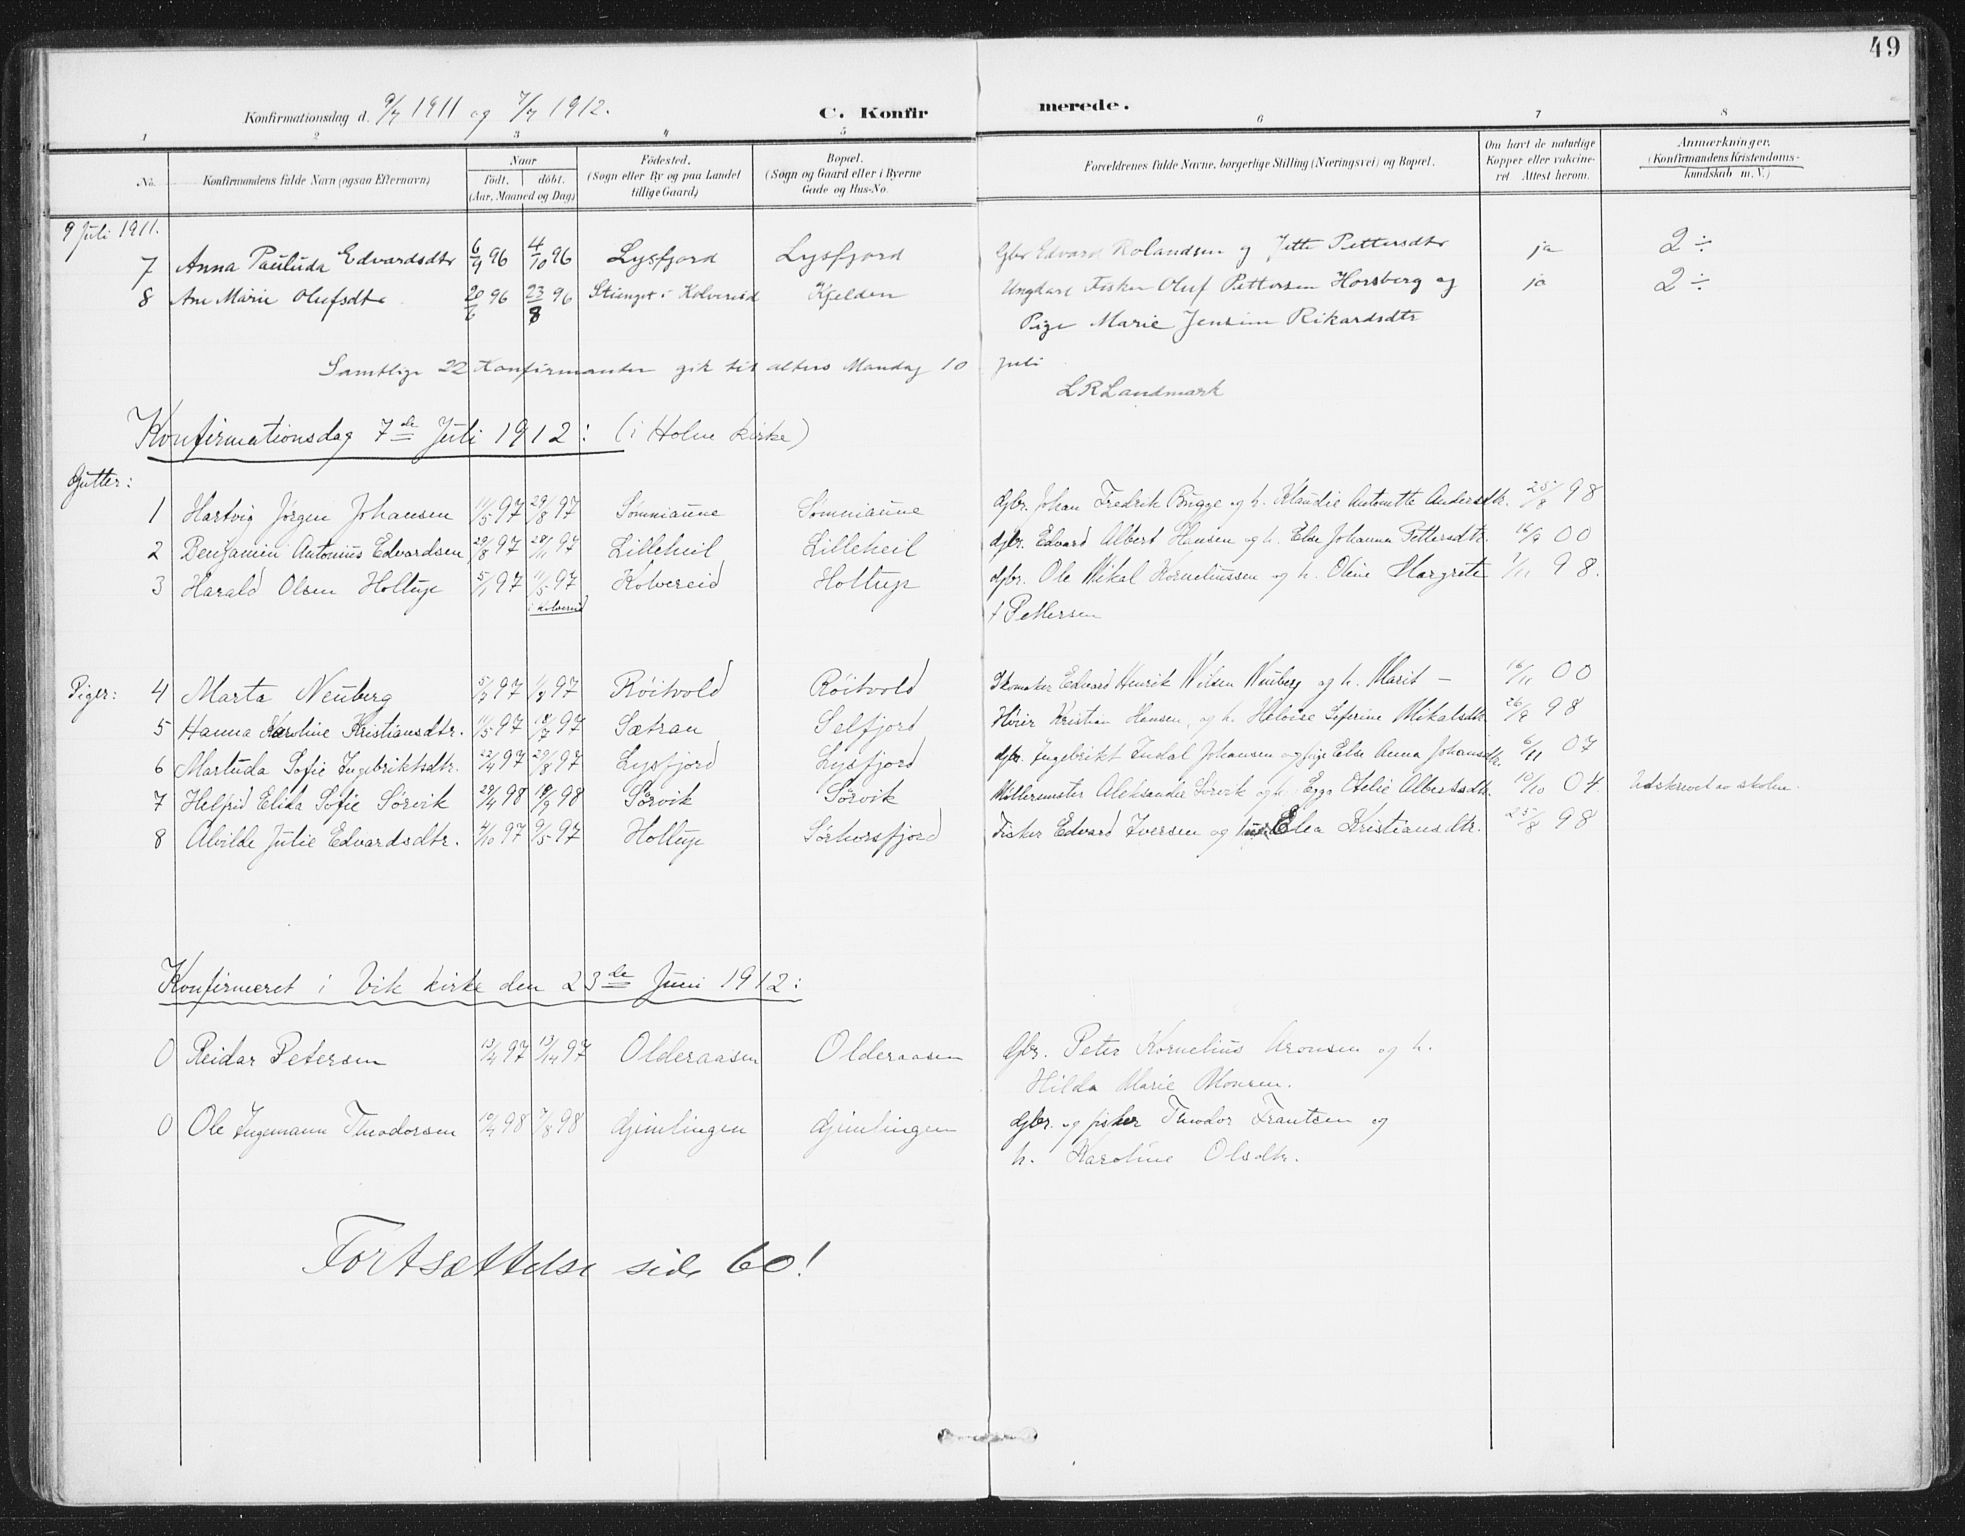 49
Konfirmationsdag d. 9/7 1911 og 7/7 1912. C. Konfirmerede.
1 2 3 4 5 6 7 8
No. Konfirmandens fulde Navn (ogsaa Efternavn) Naar født. døbt. (Aar, Maaned og Dag) Fødested. (Sogn eller By og paa Landet tillige Gaard) Bopæl. (Sogn og Gaard eller i Byerne Gade og Hus-No. Forældrenes fulde Navne, borgerlige Stilling (Næringsvei) og Bopæl. Om havt de naturlige Kopper eller vaccineret Attest herom. Anmærkninger. (Konfirmandens Kristendomskundskab m. V.)
9 Juli 1911.
7 Anna Pauluda Edvardsdtr 6/9 96 4/10 96 Lysfjord Lysfjord Gbr Edvard Rolandsen og Jette Pettersdtr ja 2÷
8 Ane Marie Olufsdtr 20/6 96 23/8 96 i Kolvereid Kjelden Ungdare Fisker Oluf Pettersen Horsberg og ja 2÷
Pige Marie Jensine Rikardsdtr
Samtlige 22 Konfirmanter gik til alters Mandag 10 juli
L R Landmark
Konfirmationsdag 7de Juli 1912: (i Holm kirke)
Gutter:
1 Hartvig Jørgen Johansen 11/5 97 29/8 97 Sømniaune Sømniaune Gbr. Johan Fredrik Bugge og h. Klaudie Antonette Andersdtr. 25/8 98
2 Benjamin Antonius Edvardsen 29/8 97 28/11 97 Lilleheil Lilleheil Gbr. Edvard Albert Hansen og h. Else Johanna Pettersdtr. 16/9 00
3 Harald Olsen Holtup 5/1 97 11/5 97 Kolvereid Holtup Gbr. Ole Mikal Korneliussen og h. Oline Margrete 1/11 98.
i Kolvereid
f Pettersen
Piger:
4 Marta Neuberg 5/2 97 97 Röitvold Röitvold Skomaker Edvard Henrik Nilsen Neuberg og h. Marit — 16/11 00
5 Hanna Karoline Kristiansdtr. 11/5 97 18/7 97 Sætran Selfjord Høier Kristian Hansen, og h. Heloise Seferine Mikalsdtr. 26/8 98
6 Martuda Sofie Ingebriktsdtr. 22/4 97 29/8 97 Lysfjord Lysfjord Gbr. Ingebrikt Indal Johansen og pige Else Anna Johansdtr. 6/11 07
7 Helfrid Elida Sofie Sørvik 29/4 98 18/9 98 Sørvik Sørvik Møllermester Aleksander Sørvik og h. Egga Otelie Albertsdtr. 10/10 04. Udskrevet av skolen.
8 Alvilde Julie Edvardsdtr. 4/10 97 9/5 97 Holtup Sørhorsfjord Fisker Edvard Iversen og Elea Kristiansdtr. 25/8 98
Konfirmeret i Vik kirke den 23de Juni 1912:
0 Reidar Petersen 13/4 97 13/4 97 Olderaasen Olderaasen Gbr. Peter Kornelius Aronsen og h.
Hilda Marie Monsen.
0 Ole Ingemann Theodorsen 10/4 98 7/8 98 Gjimlingen Gjimlingen Gbr. og fisker Theodor Frantsen og
h. Karoline Olsdtr.
Fortsættelse side 60!